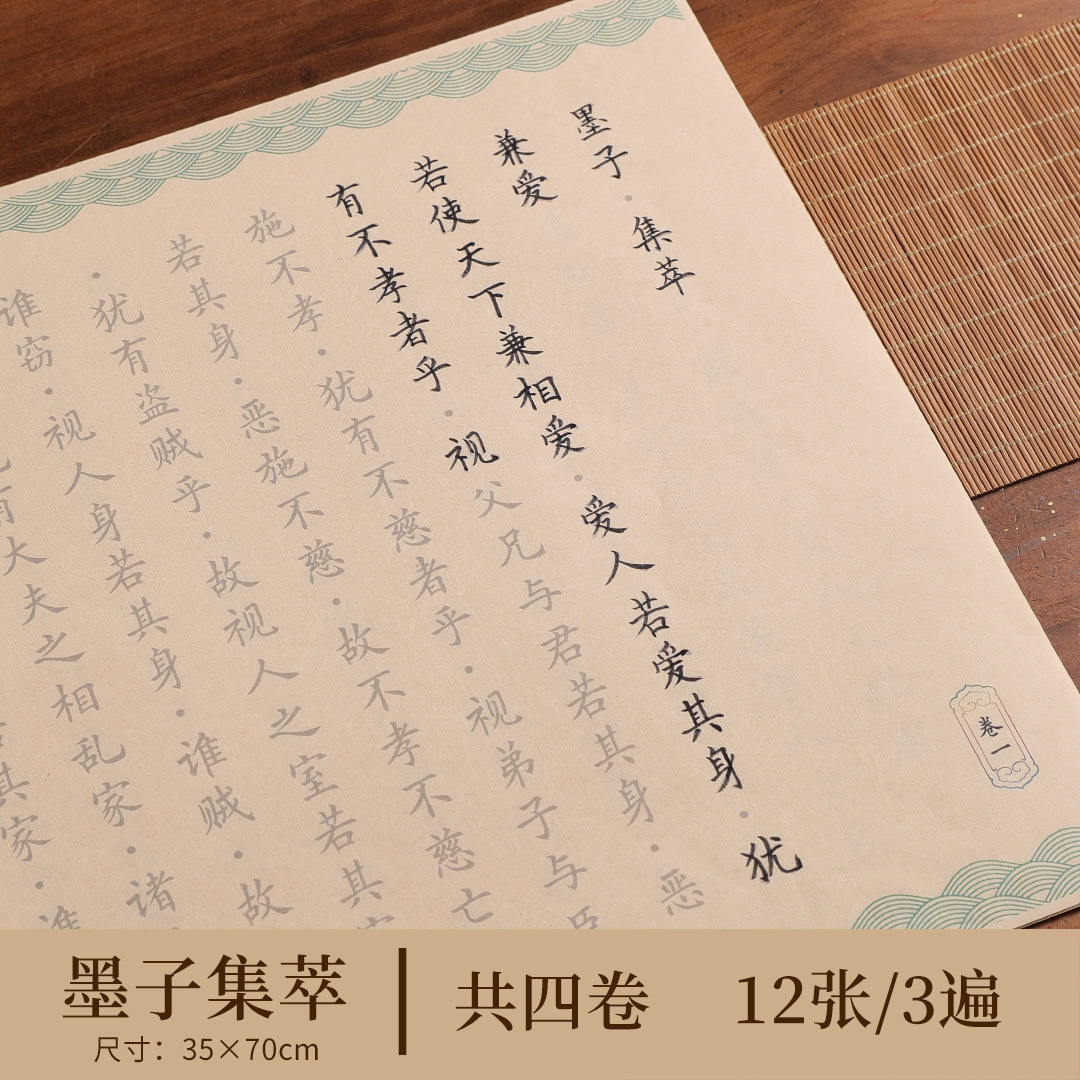 墨子·集萃
兼爱
若使天下兼相爱·爱人若爱其身·犹
有不孝者乎·视父兄与君若其身·恶
施不孝·犹有不慈者乎·视弟子与臣
若其身·恶施不慈·故不孝不慈亡
·犹有盗贼乎·故视人之室若其
谁窃·视人身若其身·谁贼·故
有大夫之相乱家·诸
其家·谁
卷一
墨子集萃
尺寸：35×70cm
共四卷
12张/3遍